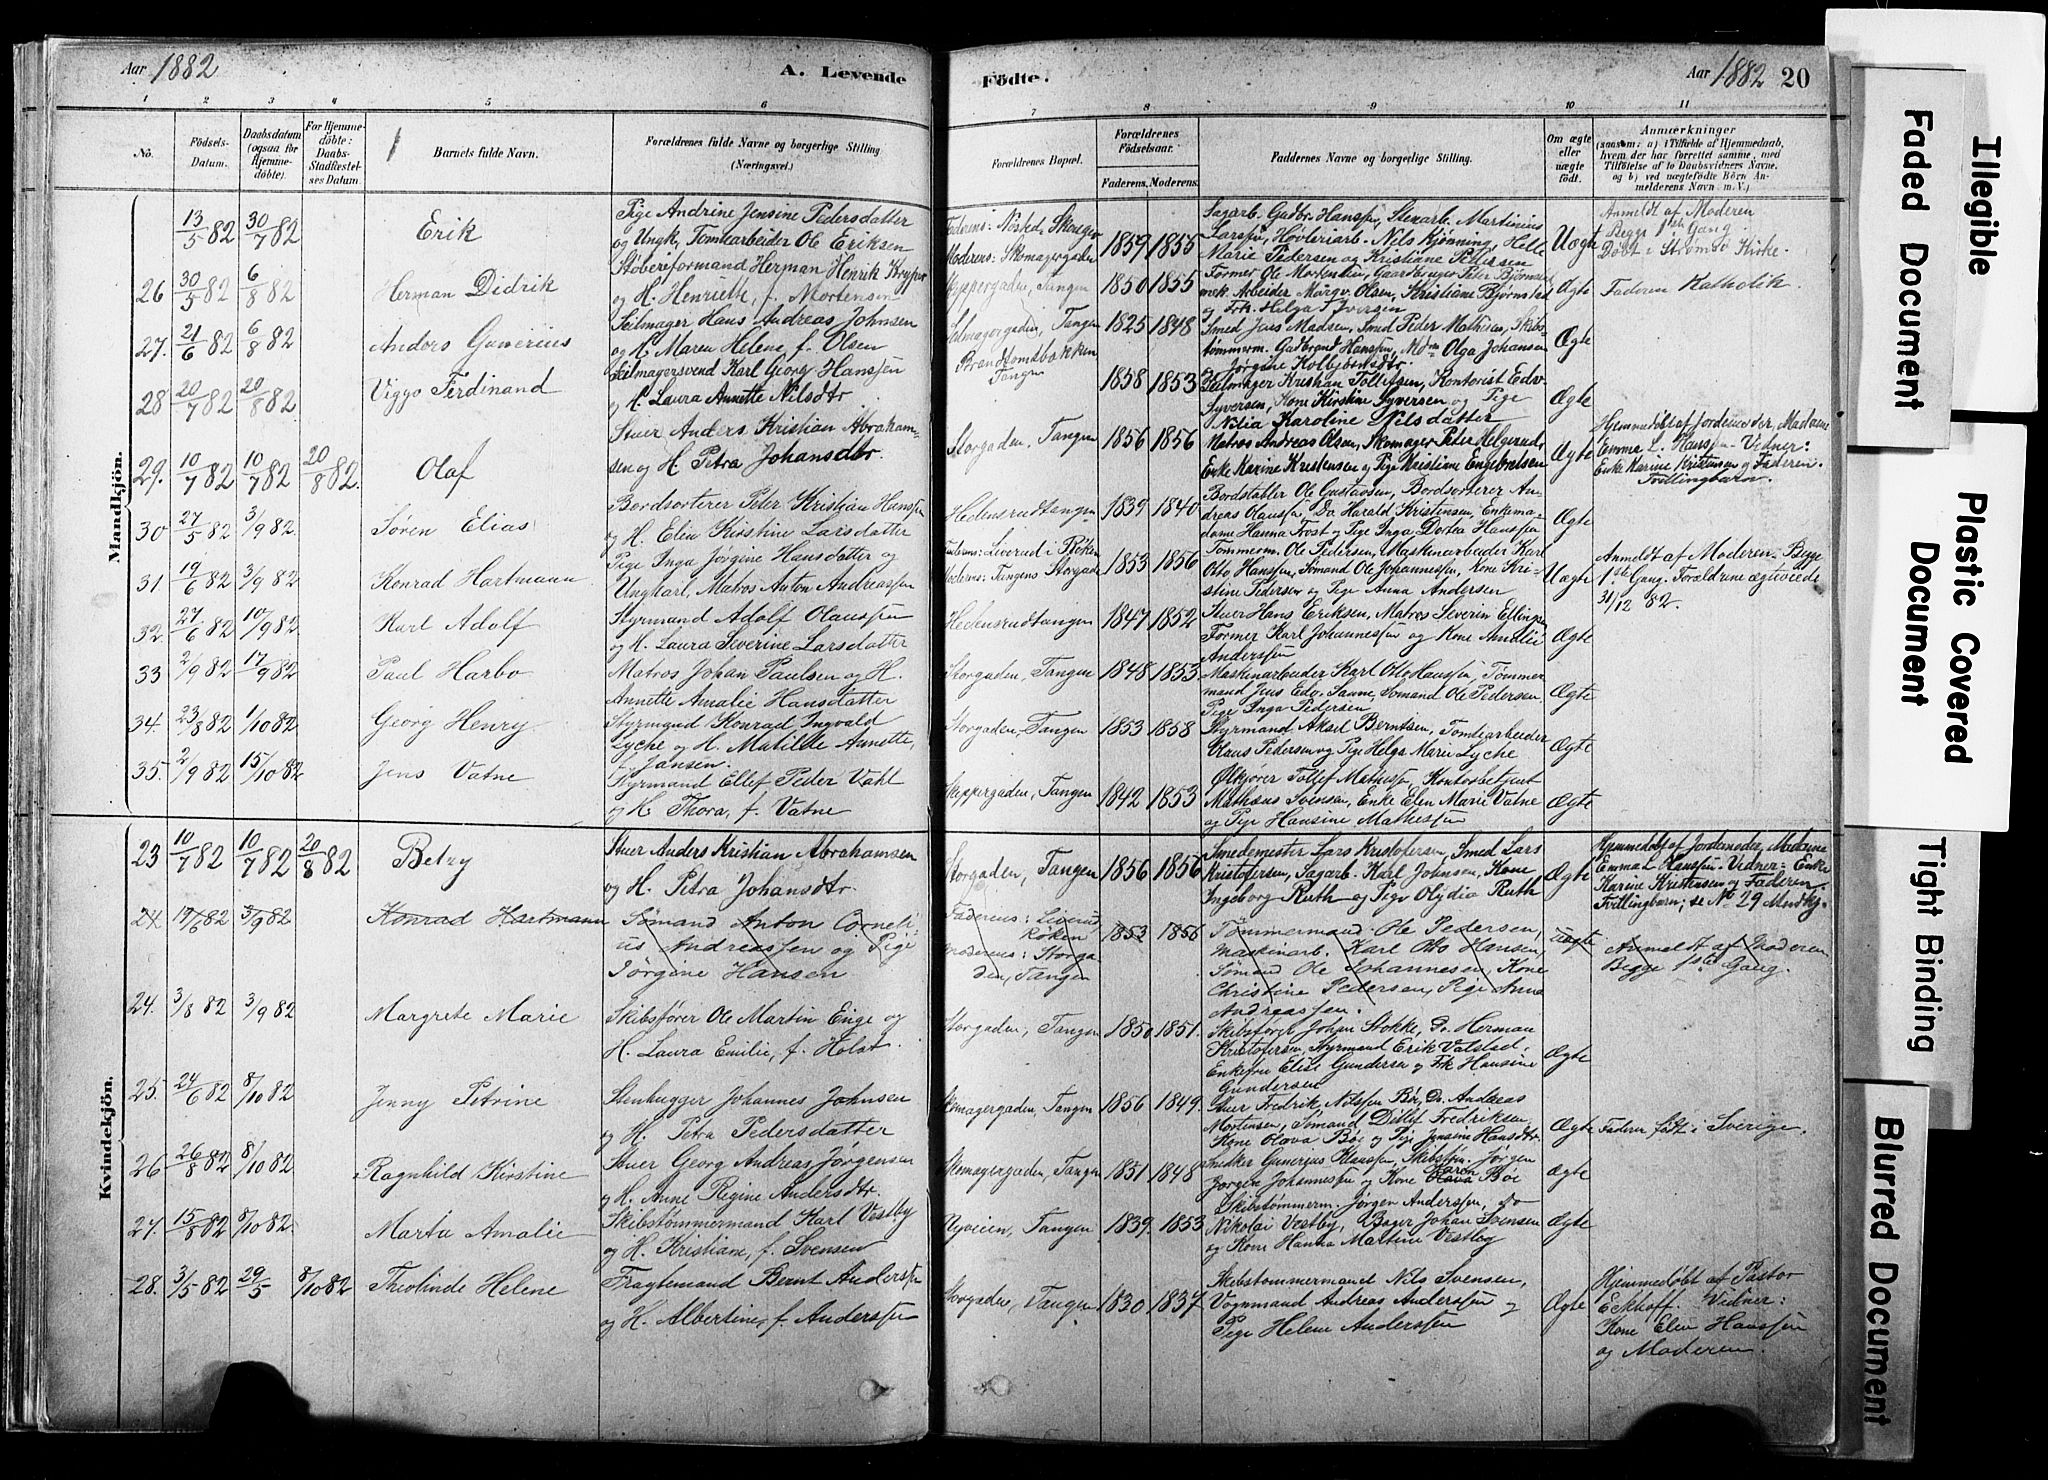 Aar 1882
A. Levende
Födte.
Aar 1882 20
1 2 3 4 5 6 7 8 9 10 11
No.
Födsels-
Datum.
Daabsdatum
(ogsaa for
Hjemme-
döbte).
For Hjemme-
döbte:
Daabs-
Stadfæstel-
ses Datum.
Barnets fulde Navn.
Forældrenes fulde Navne og borgerlige Stilling
(Næringsvei.)
Forældrenes Bopæl.
Forældrenes
Födselsaar.
Faderens. Moderens.
Faddernes Navne og borgerlige Stilling.
Om ægte
eller
uægte
født.
Anmærkninger
(saasom: a) i Tilfælde af Hjemmedaab,
hvem der har forrettet samme, med
Tilföielse af to Daabsvidners Navne,
og b) ved uægtefödte Börn An-
melderens Navn m. V.)
Mandkjön.
13/5 82 30/7 82 Erik
Pige Andrine Jensine Pedersdatter
og Ungk. Tomtearbeider Ole Eriksen
Faderens: Nøsted, Skouger
Moderens: Skomagergaden
1859 1855
Sagarb. Gudbr. Hanssen, Stenarb. Martinius
Larssen, Høvleriarb. Nils Kjønning, Helle
Marie Pedersen og Kristiane Petersen
Uægte
Anmeldt af Moderen
Begge 1ste Gang
Døbt i Strømsø Kirke.
26 30/5 82 6/8 82 Herman Didrik
Støberiformand Herman Henrik
og H. Henriette, f. Mortensen
Skippergaden, Tangen
1850 1855
Former Ole Mortensen, Gaardbruger Peter Bjørnstad
mek. Arbeider Olsen, Kristiane Bjørnstad
og Frk. Helga Iversen
Ægte
Faderen Katholik.
27. 21/6 82 6/8 82 Anders Gunerius
Seilmager Hans Andreas Johnsen
og H. Maren Helene f. Olsen
Tangen
1825 1848
Smed Jens Madsen, Smed Peder Mathisen, Skibs-
tømmerm. Gudbrand Hanssen, Mdm Olga Johansen
og Jørgine
Ægte
28 20/7 82 20/8 82 Viggo Ferdinand
Seilmagersvend Karl Georg Hanssen
og H. Laura Annette Nilsdtr
Tangen
1858 1853
Seilmager Kristian Tollefsen, Kontorist Edv.
Syversen, Kone Kirstine Syversen og Pige
Nilia Karoline Nilsdatter
Ægte
29. 10/7 82 10/7 82 20/8 82. Olaf
Stuer Anders Kristian Abraham-
sen og H. Petra Johansdtr.
Storgaden, Tangen
1856 1856
Matros Andreas Olsen, Skomager Peter Helgerud,
Enke Karine Kristensen og Pige Kristiane Engebretsen
Ægte
Hjemmedøbt af Jordemoder, Madame
Emma L. Hanssen. Vidner:
Enke Karine Kristensen og Faderen.
Tvillingbarn.
30 27/5 82 3/9 82 Søren Elias
Bordsorterer Peter Kristian Hanssen
og H. Elen Kirstine Larsdatter
Hedensrudtangen
1839 1840
Bordstabler Ole Gustavsen, Bordsorterer An-
dreas Olaussen, Do Harald Kristensen, Enkema-
dame Hanna Frost og Pige Inga Dortea Hanssen
Ægte
31. 19/6 82 3/9 82 Konrad Hartmann
Pige Inga Jørgine Hansdatter og
Ungkarl, Matros Anton Andreassen
Faderens: Liverud i Røken
Moderens: Tangens Storgade
1853 1856
Tømmerm. Ole Pedersen, Maskinarbeider Karl
Otto Hanssen, Sømand Ole Johannessen, Kone Kri-
stine Pedersen og Pige Anna Andersen
Uægte
Anmeldt af Moderen. Begge
1ste Gang. Forældrene ægteviede
31/12 82.
32. 27/6 82 10/9 82 Karl Adolf
Styrmand Adolf Olaussen
og H. Laura Severine Larsdatter
Hedensrudtangen
1847 1852
Stuer Hans Eriksen, Matros Severin Ellingsen
Former Karl Johannessen og Kone Amalie
Anderssen
Ægte
33 2/9 82 17/9 82 Paul Harbo
Matros Johan Paulsen og H.
Annette Amalie Hansdatter
Storgaden, Tangen
1848 1853
Maskinarbeider Karl Otto Hanssen, Tømmer
mand Jens Edv. Sanne, Sømand Ole Pedersen
Pige Inga Pedersen
Ægte
34. 23/8 82 1/10 82 Georg Henry
Styrmand Konrad Ingvald
Lyche og H. Matilde Annette,
f. Jansen.
Storgaden, Tangen
1853 1858
Styrmand Aksel Berntsen, Tomtearbeider
Olaus Pedersen og Pige Helga Marie Lyche
Ægte
35. 2/9 82 15/10 82 Jens Vatne
Styrmand Ellef Peder Vahl
og H. Thora, f. Vatne
Skippergaden, Tangen
1842 1853
Ølkjører Tollef Mathissen, Kontorbetjent
Mathæus Svensen, Enke Elen Marie Vatne
og Pige Hansine Mathessen
Ægte
Kvindekjön.
23 10/7 82 10/7 82 20/8 82 Betzy
Stuer Anders Kristian Abrahamsen
og H. Petra Johansdtr.
Storgaden, Tangen
1856 1856
Smedemester Lars Kristofersen, Smed Lars
Kristofersen, Sagarb. Karl Johnsen, Kone
Ingeborg Ruth og Pige Olydia Ruth
Ægte
Hjemmedøbt af Jordemoder, Madame
Emma L. Hanssen. Vidner: Enke
Karine Kristensen og Faderen.
Tvillingbarn; se No 29 Mandkj.
24. 19/6 82 3/9 82 Konrad Hartmann
Sømand Anton Corneli-
us Andreassen og Pige
Jørgine Hansen
Faderens: Liverud
Røken
Moderens: Storga
den, Tangen
1853 1856
Tømmermand Ole Pedersen,
Maskinarb. Karl Otto Hansen,
Sømand Ole Johannesen, Kone
Christine Pedersen, Pige Anna
Andreassen.
Uægte
Anmeldt af Moderen
Begge 1ste Gang.
24. 3/8 82 3/9 82 Margrete Marie
Skibsfører Ole Martin Enge og
H. Laura Emilie, f. Holst.
Storgaden, Tangen
1850 1851.
Skibsfører Johan Stokke, Do Herman
Kristofersen, Styrmand Erik Valstad,
Enkefru Elise Gundersen og Frk Hansine
Gundersen
Ægte
25. 24/6 82 8/10 82 Jenny Petrine
Stenhugger Johannes Johnsen
og H. Petra Pedersdatter
Skomagergaden, Tangen
1856 1849.
Stuer Fredrik Nilssen Bøe, Do. Andreas
Mortensen, Sømand Ditlef Fredriksen
Kone Olava Bøe og Pige Jensine Hansdtr.
Ægte
Faderen født i Sverige.
26 26/8 82 8/10 82 Ragnhild Kirstine
Stuer Georg Andreas Jørgensen
og H. Anne Regine Andersdtr.
Skomagergaden, Tangen
1851 1848
Snedker Gunerius Klaussen, Skibstøm. Jørgen
Jørgen Johannessen og Kone Karen Olava Bøe
Ægte
27. 15/8 82 8/10 82. Marta Amalie
Skibstømmermand Karl Vestby
og H. Kristiane, f. Svensen
Nyveien, Tangen
1839. 1853
Skibstømmerm. Jørgen Anderssen, do
Nikolai Vestby, Bager Johan Svensen
og Kone Hanna Martine Vestby
Ægte
28. 3/5 82 29/5 8/10 82 Theolinde Helene
Fragtemand Bernt Anderssen
og H. Albertine, f. Anderssen
Storgaden, Tangen
1830 1837
Skibstømmermand Nils Svensen,
Vognmand Andreas Anderssen og
Pige Helene Anderssen
Ægte
Hjemmedøbt af Pastor
Eckhoff. Vidner:
Kone Elen Hanssen
og Moderen.
Illegible
Faded Document
Plastic Covered
Document
Tight Binding
Blurred Document